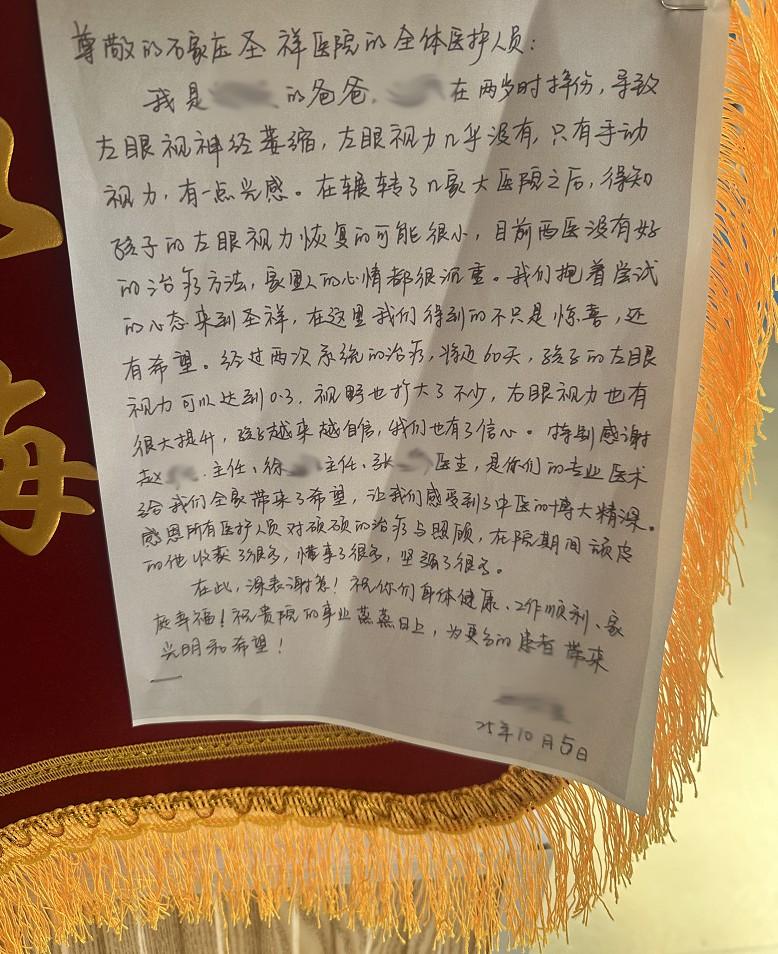 尊敬的石家庄圣祥医院的全体医护人员：
我是 的爸爸， 在两岁时摔伤，导致
左眼视神经萎缩，左眼视力几乎没有，只有手动
视力，有一点光感。在辗转了几家大医院之后，得知
孩子的左眼视力恢复的可能很小，目前西医没有好
的治疗方法，家里人的心情都很沉重。我们抱着尝试
的心态来到圣祥，在这里我们得到的不只是惊喜，还
有希望。经过两次系统的治疗，将近60天，孩子的左眼
视力可以达到0.3，视野也扩大了不少，右眼视力也有
很大提升，孩子越来越自信，我们也有了信心。特别感谢
赵 主任、徐 主任、张 医生，是你们的专业医术
给我们全家带来了希望，让我们感受到了中医的博大精深。
感恩所有医护人员对硕硕的治疗与照顾，在院期间顽皮
的他收获了很多，懂事了很多，坚强了很多。
在此，深表谢意！祝你们身体健康、工作顺利、家
庭幸福！祝贵院的事业蒸蒸日上，为更多的患者带来
光明和希望！
25年10月5日
海